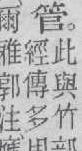 管。此與竹部
經傳多用
爾雅郭注